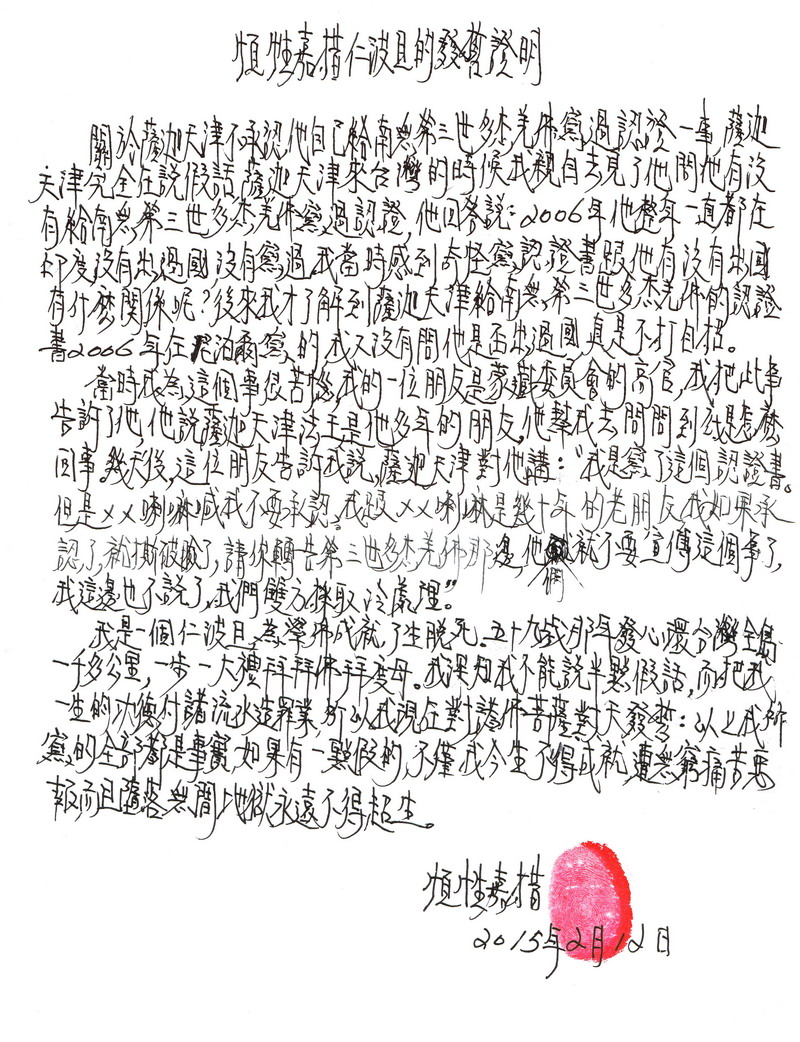 恒性嘉措仁波且的發誓證明
關於薩迦天津不承認他自己給南無第三世多杰羌佛寫過認證一事薩迦
天津完全在說假話,薩迦天津來台灣的時候我親自去見了他問他有沒
有給南無第三世多杰羌佛寫過認證,他回答說:2006年他整年一直都在
印度沒有出過國沒有寫過我當時感到奇怪寫認證書跟他有沒有出國
有什麼關係呢?後來我才了解到薩迦天津給南無第三世多杰羌佛的認證
書2006年在尼泊爾寫的我又沒有問他是否出過國真是不打自招。
當時我為這個事很苦惱,我的一位朋友是蒙藏委員會的高官,我把此事
告訴了他,他說薩迦天津法王是他多年的朋友,他幫我去問問到底是怎麼
回事,幾天後,這位朋友告訴我說,薩迦天津對他講:“我是寫了這個認證書。
但是XX喇嘛喊我不要承認,我跟XX喇嘛是幾十年的老朋友我如果承
認了就撕破臉了,請你轉告第三世多杰羌佛那邊,他們就不要宣傳這個事了,
我這邊也不說了,我們雙方採取冷處理。”
我是一個仁波且,為學佛成就了生脫死,五十九歲那年發心環台灣全島
一千多公里,一步一大禮拜拜佛拜度母。我深知我不能說半點假話,而把我
一生的功德付諸流水造罪業,所以我現在對諸佛菩薩對天發誓:以上我所
寫的全部都是事實,如果有一點假的,不僅我今生不得成就遭無窮痛苦惡
報而且墮落無間地獄永遠不得超生。
恒性嘉措
2015年2月12日